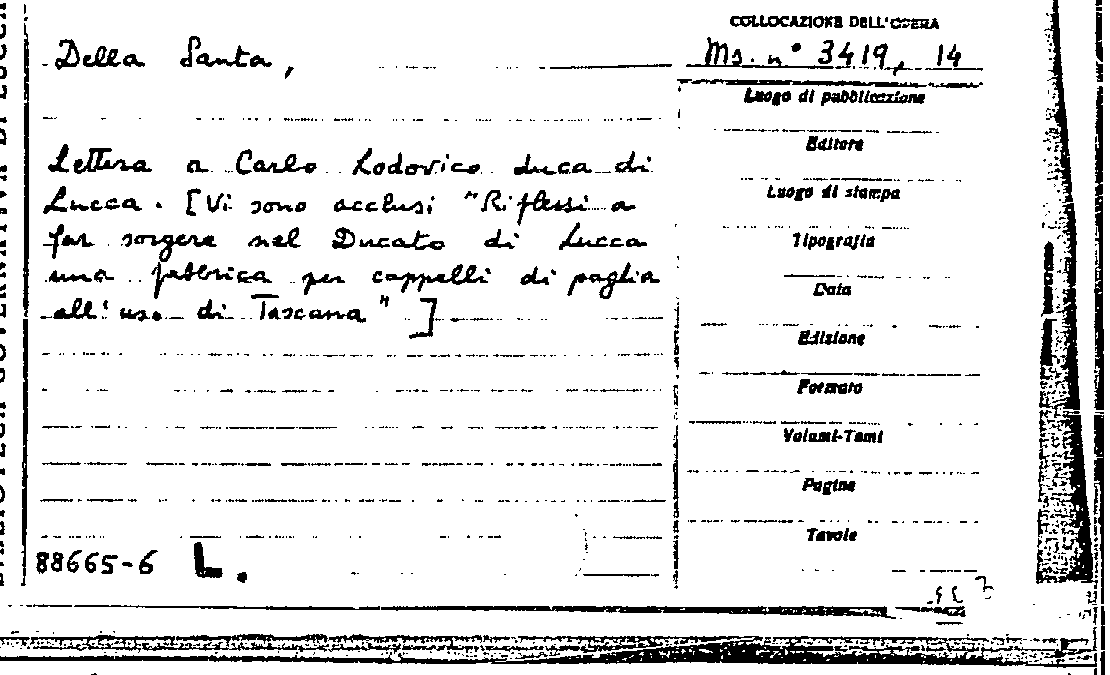 BIBLIOTECA GOVERNATIVA DI LUCCA
Della Santa,
Lettera a Carlo Lodovico duca di
Lucca. [Vi sono acclusi "Riflessi a
far sorgere nel Ducato di Lucca
una fabbrica per cappelli di paglia
all'uso di Toscana"]
88665-6 L.
COLLOCAZIONE DELL'OPERA
Ms. n° 3419, 14
Luogo di pubblicazione
Editore
Luogo di stampa
Tipografia
Data
Edizione
Formato
Volumi-Tomi
Pagine
Tavole